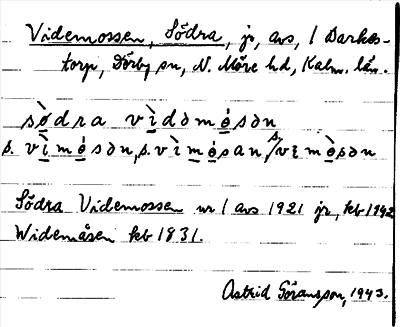 Videmossen, Södra, jo, avs, / Barkes-
torp, Dörby sn, N. Möre hd, Kalm. län.
sø̀dra vìdəmó̩sən
s. vìmó̩sən, s. vìmó̩san, s. vimò̩sən
Södra Videmossen nr 1 avs 1921 jr, kb 1942
Widemåsen kb 1831.
Astrid Göransson, 1943.